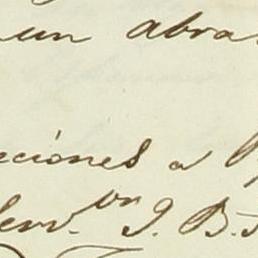 un abra
ciones a
Serv.or J. B.